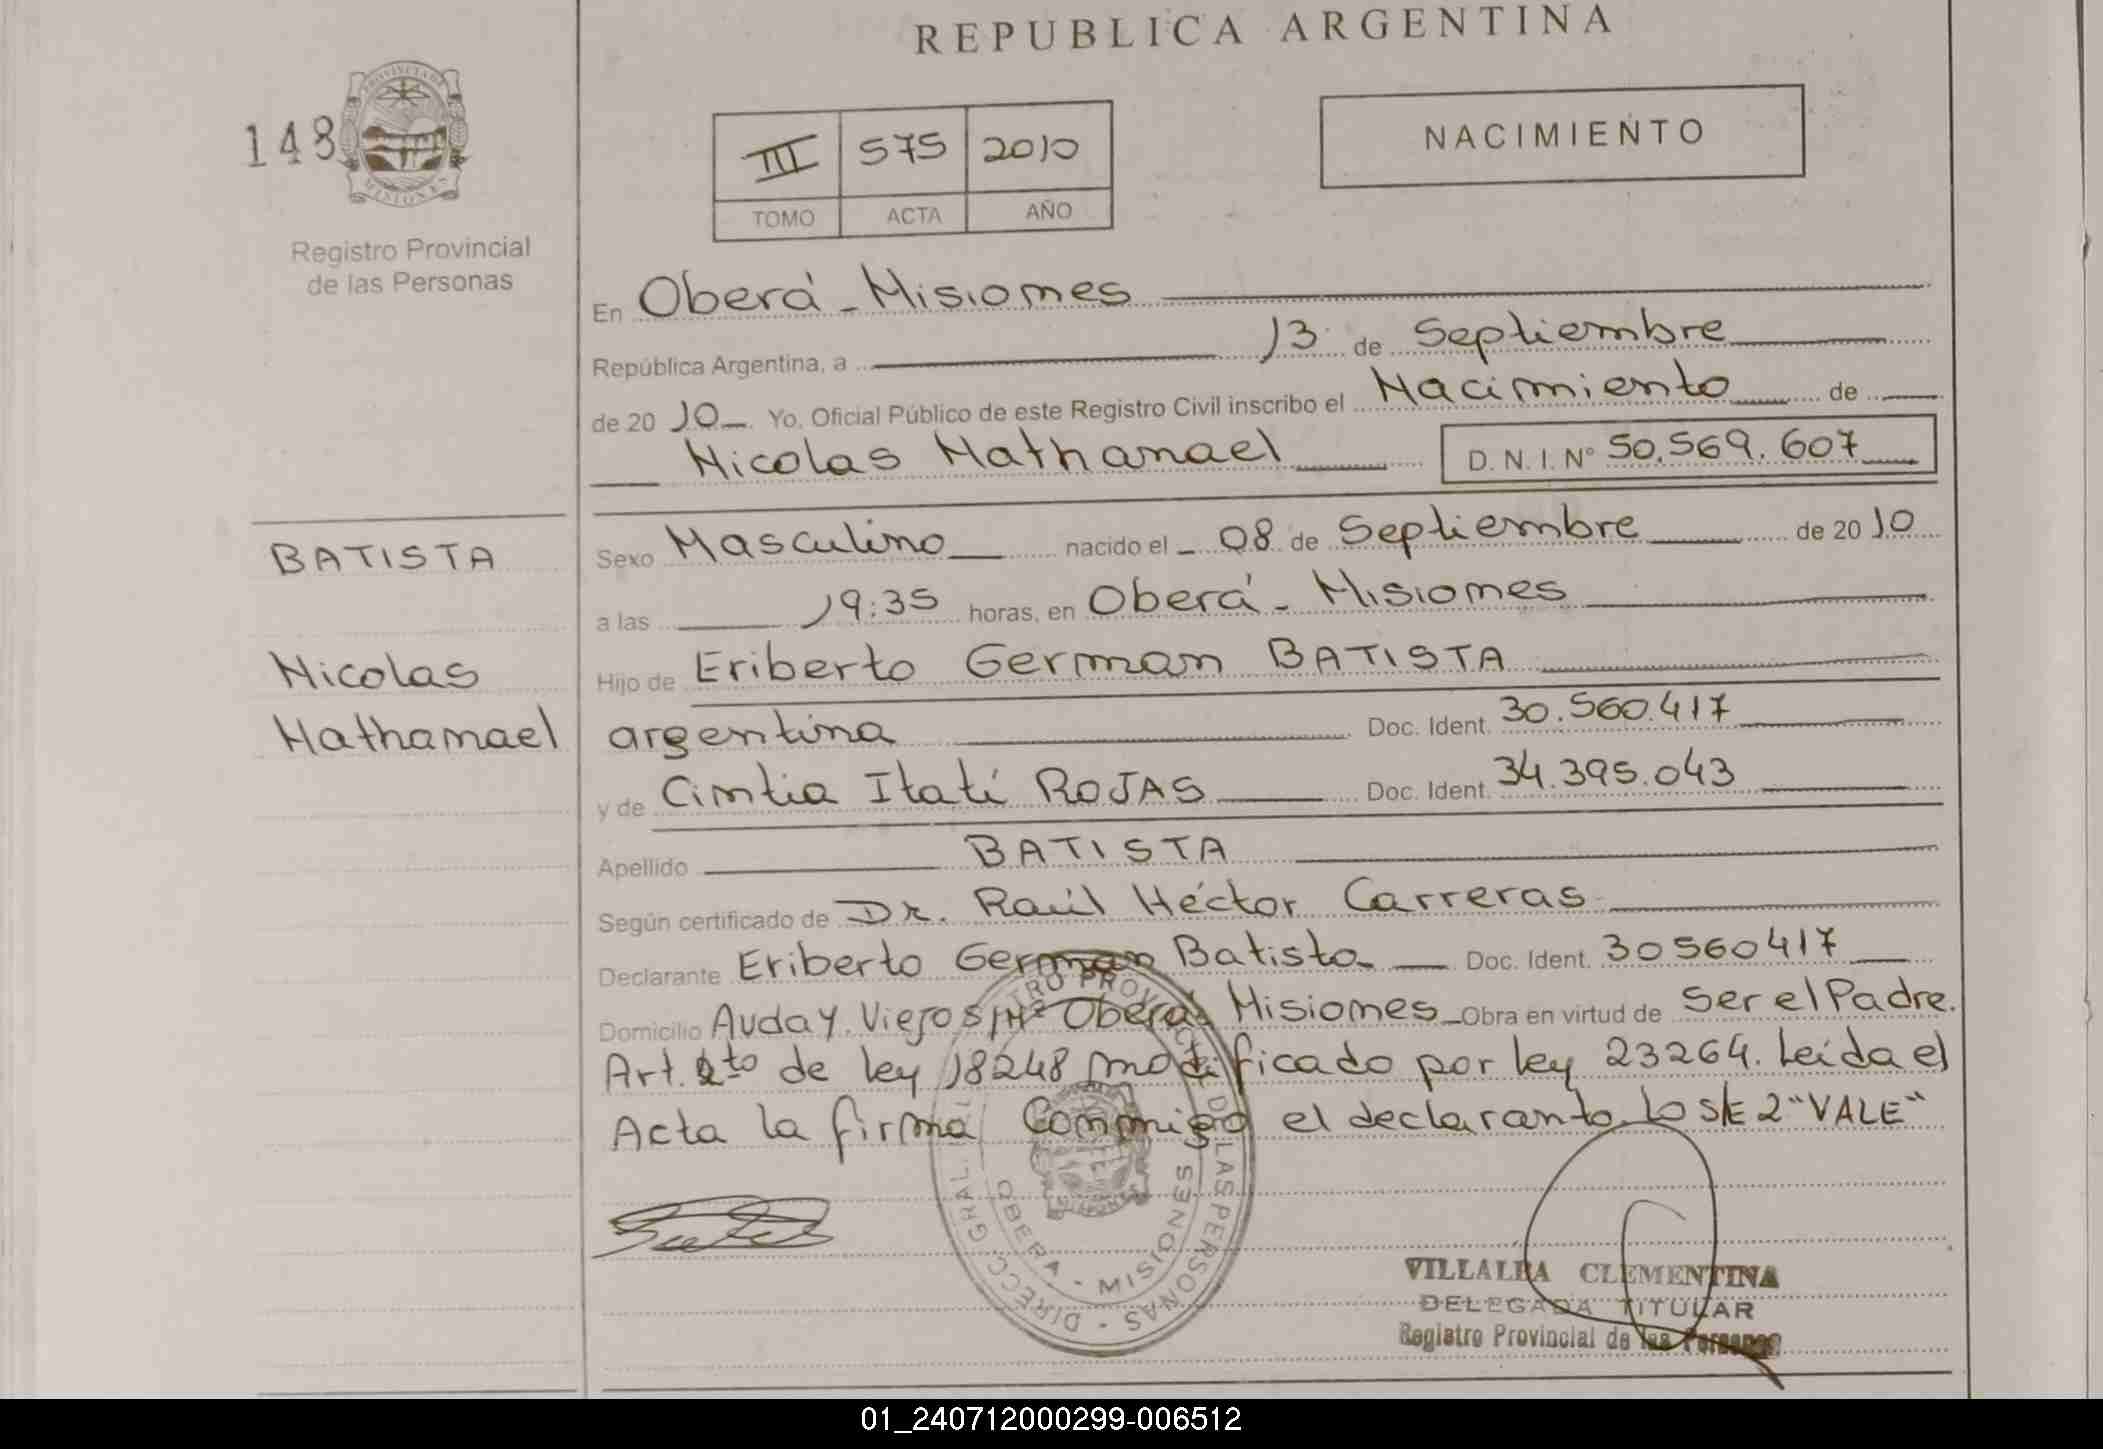 REPUBLICA ARGENTINA
148
PROVINCIA DE
MISIONES
Registro Provincial
de las Personas
III 575 2010
TOMO ACTA AÑO
NACIMIENTO
En Oberá - Misiones
República Argentina, a 13 de Septiembre
de 2010. Yo, Oficial Público de este Registro Civil inscribo el Nacimiento de
Nicolas Nathanael D.N.I.Nº 50.569.607
BATISTA
Nicolas
Nathanael
Sexo Masculino nacido el 08 de Septiembre de 2010
a las 19:35 horas, en Oberá - Misiones
Hijo de Eriberto German BATISTA
argentina Doc. Ident. 30.560.417
y de Cintia Itatí ROJAS Doc. Ident. 34.395.043
Apellido BATISTA
Según certificado de Dr. Raúl Héctor Carreras
Declarante Eriberto German Batista Doc. Ident. 30560417
Domicilio Avda Y. Viejo S/Nº Oberá Misiones Obra en virtud de Ser el Padre.
Art. to de ley 18248 modificado por ley 23264. Leída el
Acta la firma Conmigo el declarante. Lo S/E 2 "VALE"
DIRECC. GRAL. REGISTRO PROVINCIAL DE LAS PERSONAS
OBERA - MISIONES
VILLALBA CLEMENTINA
DELEGADA TITULAR
Registro Provincial de las Personas
01_240712000299-006512